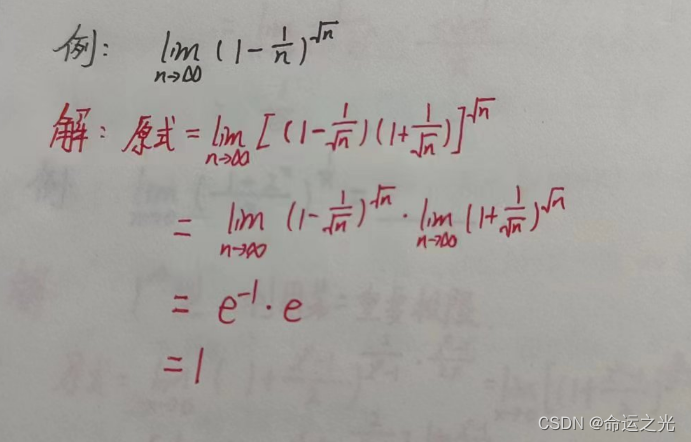 例: lim n→∞ (1-1/n)^√n
解: 原式 = lim n→∞ [(1-1/√n)(1+1/√n)]^√n
= lim n→∞ (1-1/√n)^√n · lim n→∞ (1+1/√n)^√n
= e^-1 · e
= 1
CSDN @命运之光